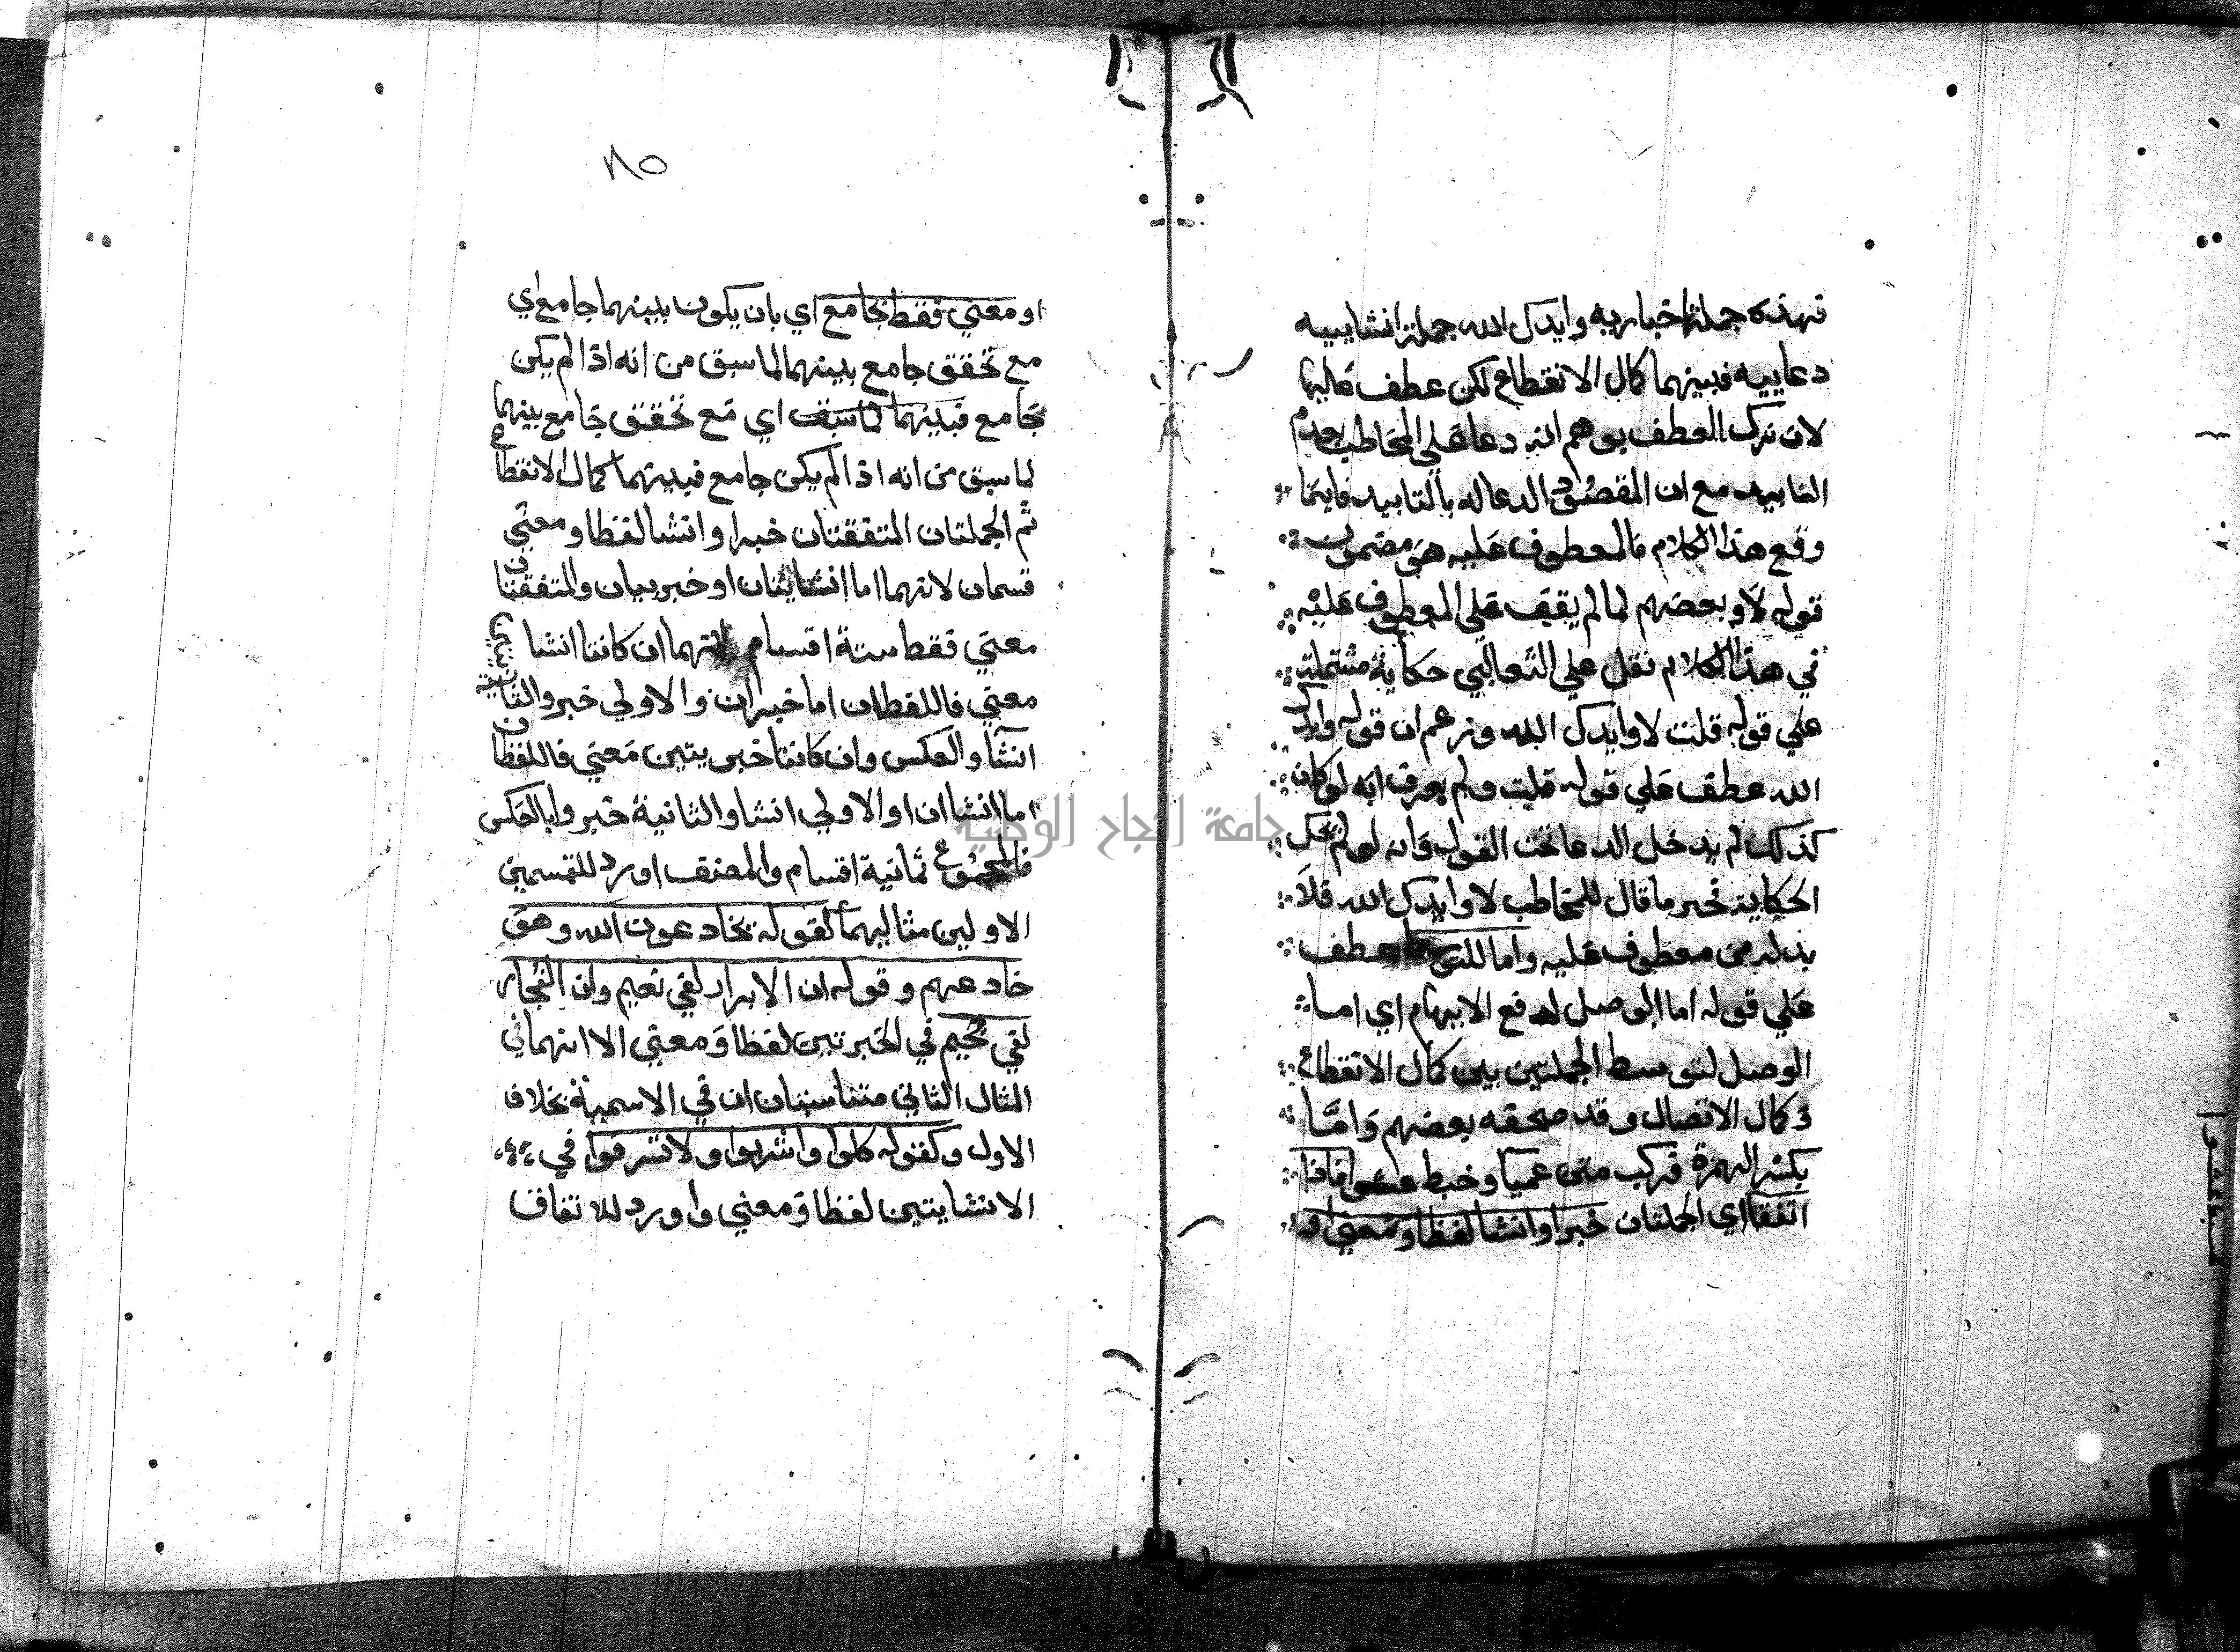 فهذه جملة اخبارية وايدك الله جملة انشاييه
دعاييه فبينهما كمال الانقطاع لكن عطف عليها
لان ترك العطف يوهم انه دعا علي المخاطب بعدم
التاييد مع ان المقصود الدعا له بالتاييد فاينما
وقع هذا الكلام فالمعطوف عليه هو مضمون
قوله لا وبعضهم لما لم يقف علي المعطوف عليه
في هذا الكلام نقل علي الثعالبي حكاية مشتملة
علي قوله قلت لا وايدك الله وزعم ان قوله وايدك
الله عطف علي قوله قلت ولم يعرف انه لو كان
كذلك لم يدخل الدعا تحت القول وانه لو لم يحك
الحكاية فحير ما قال للمخاطب لا وايدك الله فلا
بد له من معطوف عليه واما للتوسط عطف
علي قوله اما الوصل لدفع الايهام اي اما
الوصل لتوسط الجملتين بين كمال الانقطاع
وكمال الاتصال وقد صحفه بعضهم واما
بكسر الهمزة فركب متن عميا وخبط عشوا فاذا
اتفقا اي الجملتان خبرا وانشا لفظا ومعني او
٨٥
او معني فقط بجامع اي بان يكون بينهما جامع اي
مع تحقق جامع بينهما لما سبق من انه اذا لم يكن
جامع فبينهما لما سبق اي مع تحقق جامع بينهما
لما سبق من انه اذا لم يكن جامع فبينهما كمال الانقطاع
ثم الجملتان المتفقتان خبرا وانشا لفظا ومعني
قسمان لانهما اما انشايتان او خبريتان والمتفقتان
معني فقط ستة اقسام لانهما ان كانتا انشايتين
معني فاللفظان اما خبران والاولي خبر والثانية
انشا والعكس وان كانتا خبريتين معني فاللفظان
اما انشاان او الاولي انشا والثانية خبر وبالعكس
فالمجموع ثمانية اقسام والمصنف اورد للقسمين
الاولين مثاليهما كقوله يخادعون الله وهو
خادعهم وقوله ان الابرار لفي نعيم وان الفجار
لفي جحيم في الخبرتين لفظا ومعني الا انهما في
المثال الثاني متناسبتان في الاسمية بخلاف
الاول وكقوله كلوا واشربوا ولا تسرفوا في
الانشايتين لفظا ومعني واورد للاتفاق
جامعة النجاح الوطنية